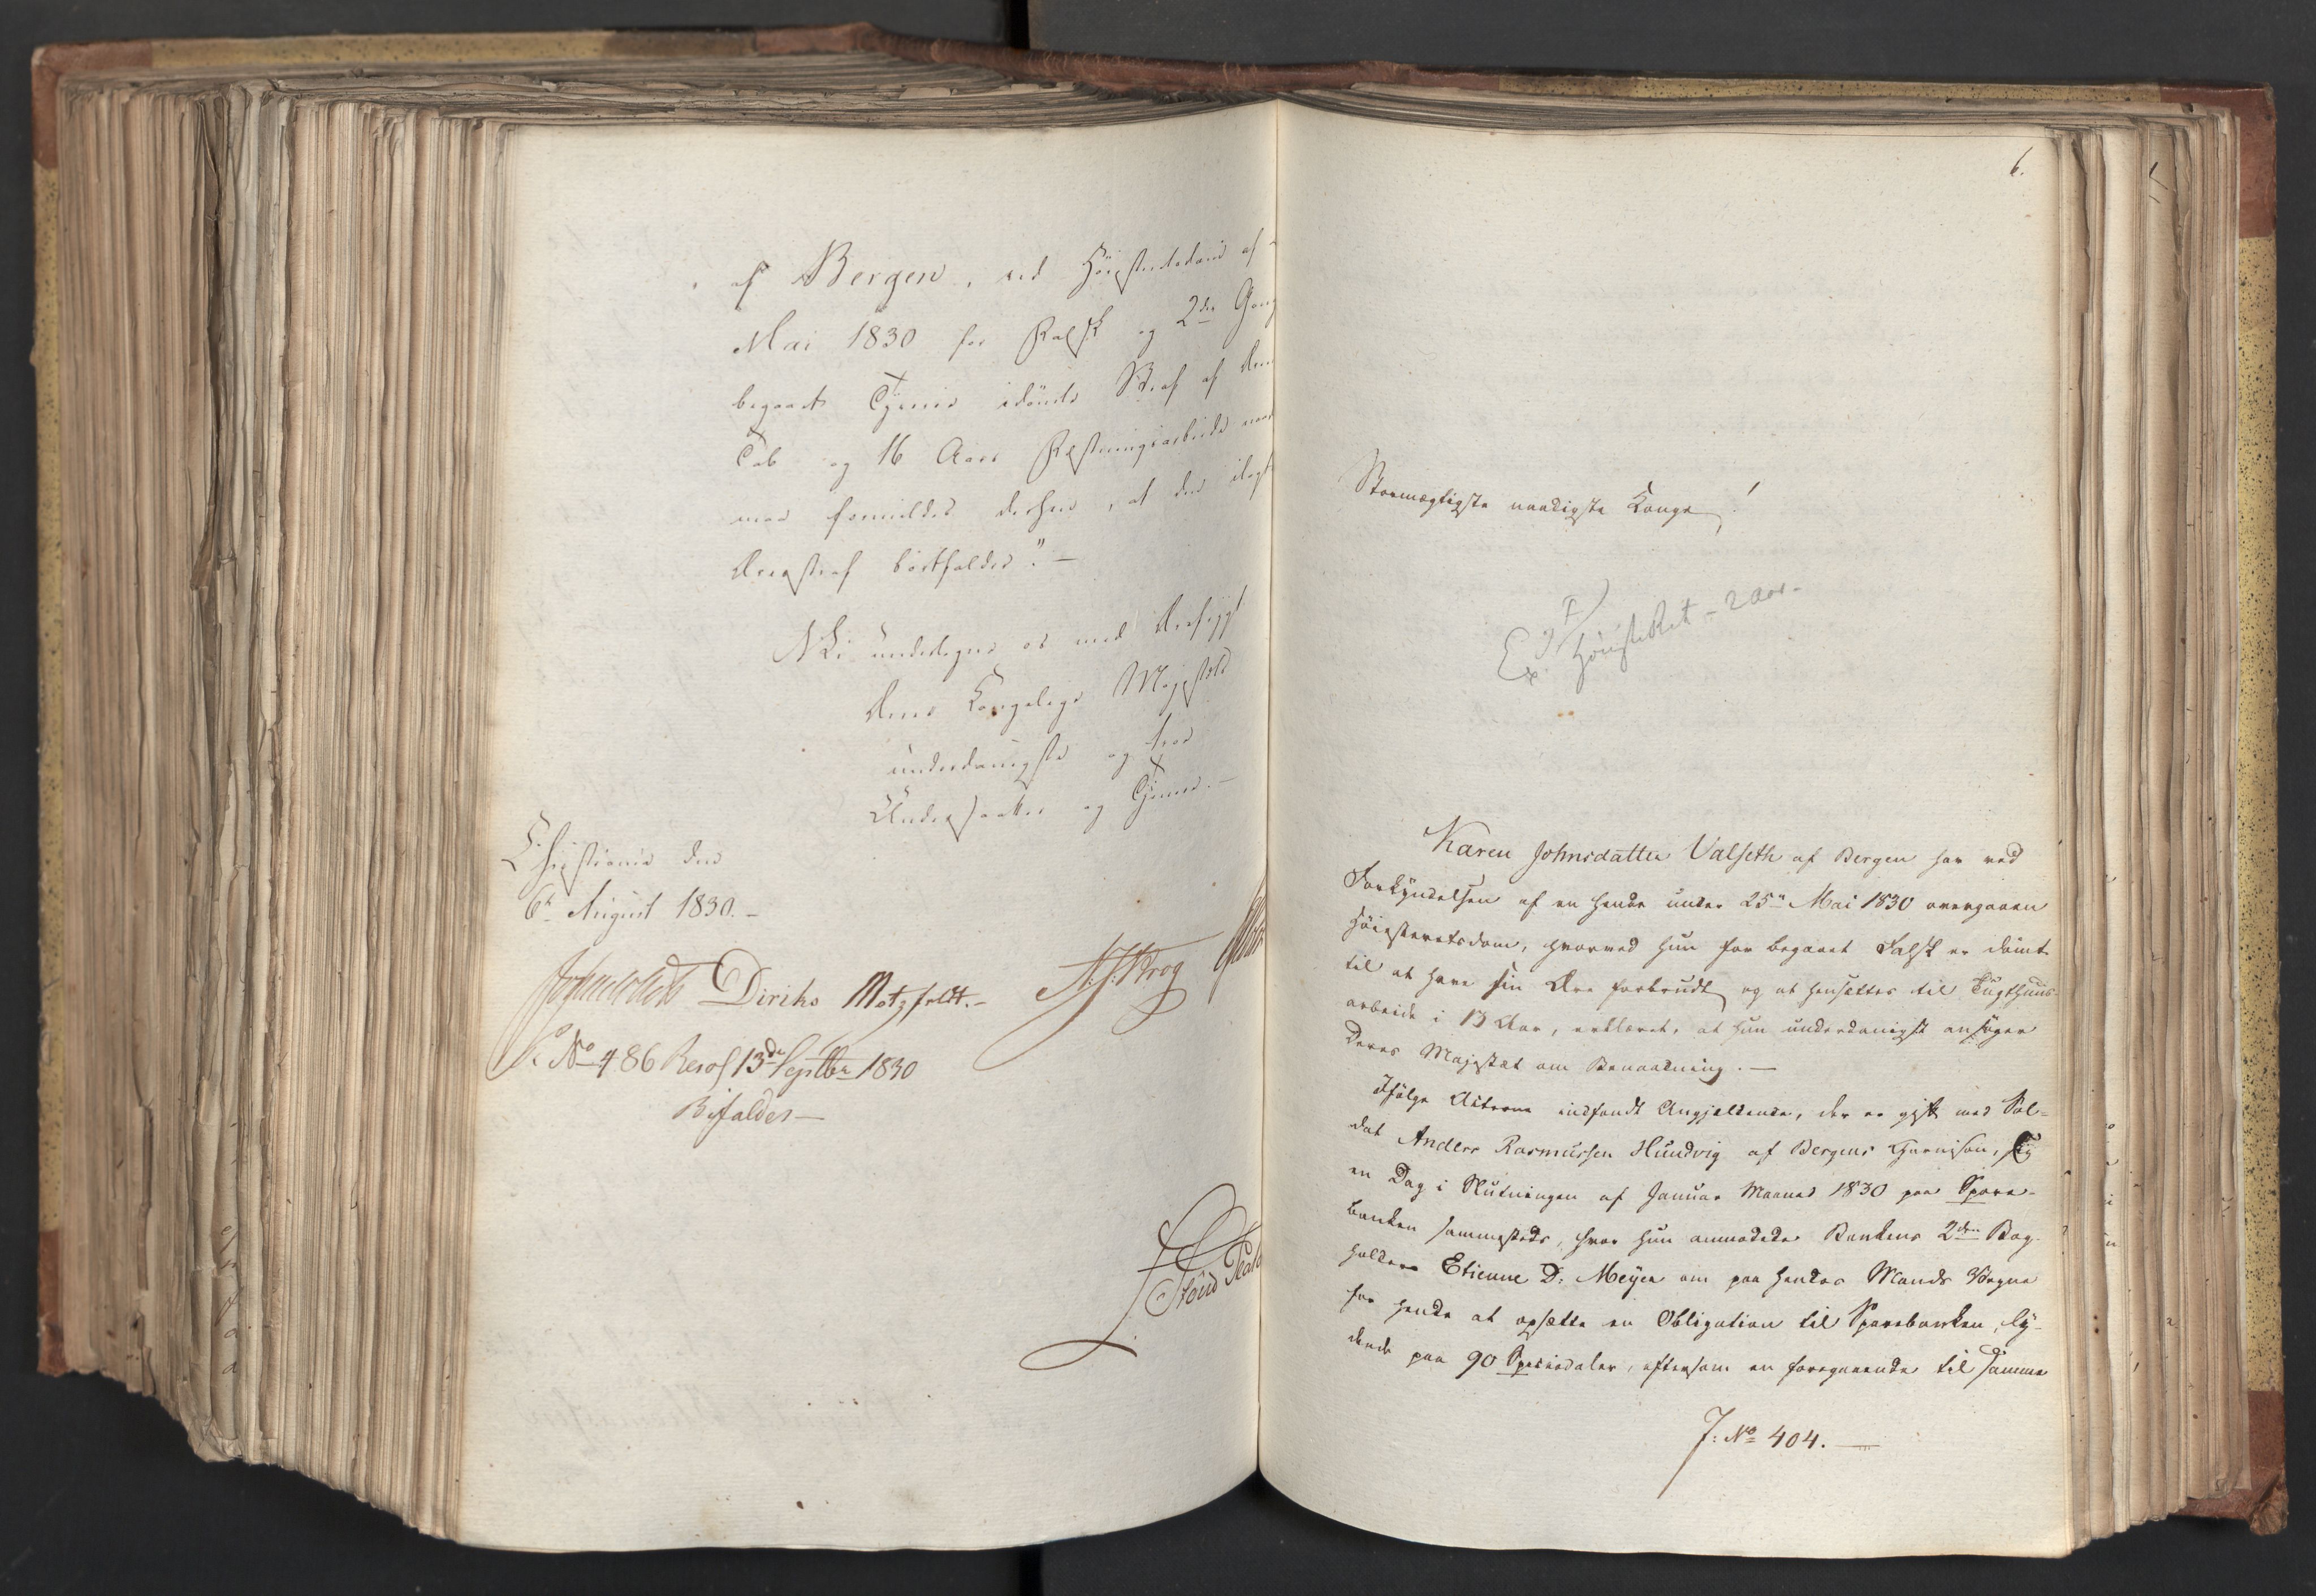 af Bergen, ved Höiesteretsdom af
Mai 1830 for Falsk og 2den Gang
begaaet Tyverie idömte Straf af Æres
Tab og 16 Aars Fæstningsarbeide naadigst
maa formildes derhen, at den idömte
Æresstraf bortfalder." —
Vi undertegne os med Ærefrygt
Deres Kongelige Majestæts
underdanigste og troe
Undersaatter og Tjenere. —
Christiania den
6te August 1830. —
Diriks Motzfeldt. — Krog
No 486 Resol 13de Septbr 1830
Bifaldes —
6.
Stormægtigste naadigste Konge!
Ex. HöiesteRet - 2 Aar -
Karen Johnsdatter Valseth af Bergen har ved
Forkyndelsen af en hende under 25de Mai 1830 overgaaen
Höiesteretsdom, hvorved hun for begaaet Falsk er dömt
til at have sin Ære forbrudt og at hensættes til Tugthuus-
arbeide i 13 Aar, erklæret, at hun underdanigst ansöger
Deres Majestæt om Benaadning. —
Ifölge Acterne indfandt Angjeldende, der er gift med Sol-
dat Anders Rasmussen Hundvig af Bergens Garnison, sig
en Dag i Slutningen af Januar Maaned 1830 paa Spare-
banken sammesteds, hvor hun anmodede Bankens 2den Bog-
holder Etienne D: Meyer om paa hendes Mands Vegne
for hende at opsætte en Obligation til Sparebanken, ly-
dende paa 90 Speciedaler, eftersom en foregaaende til samme
J: No 404. —